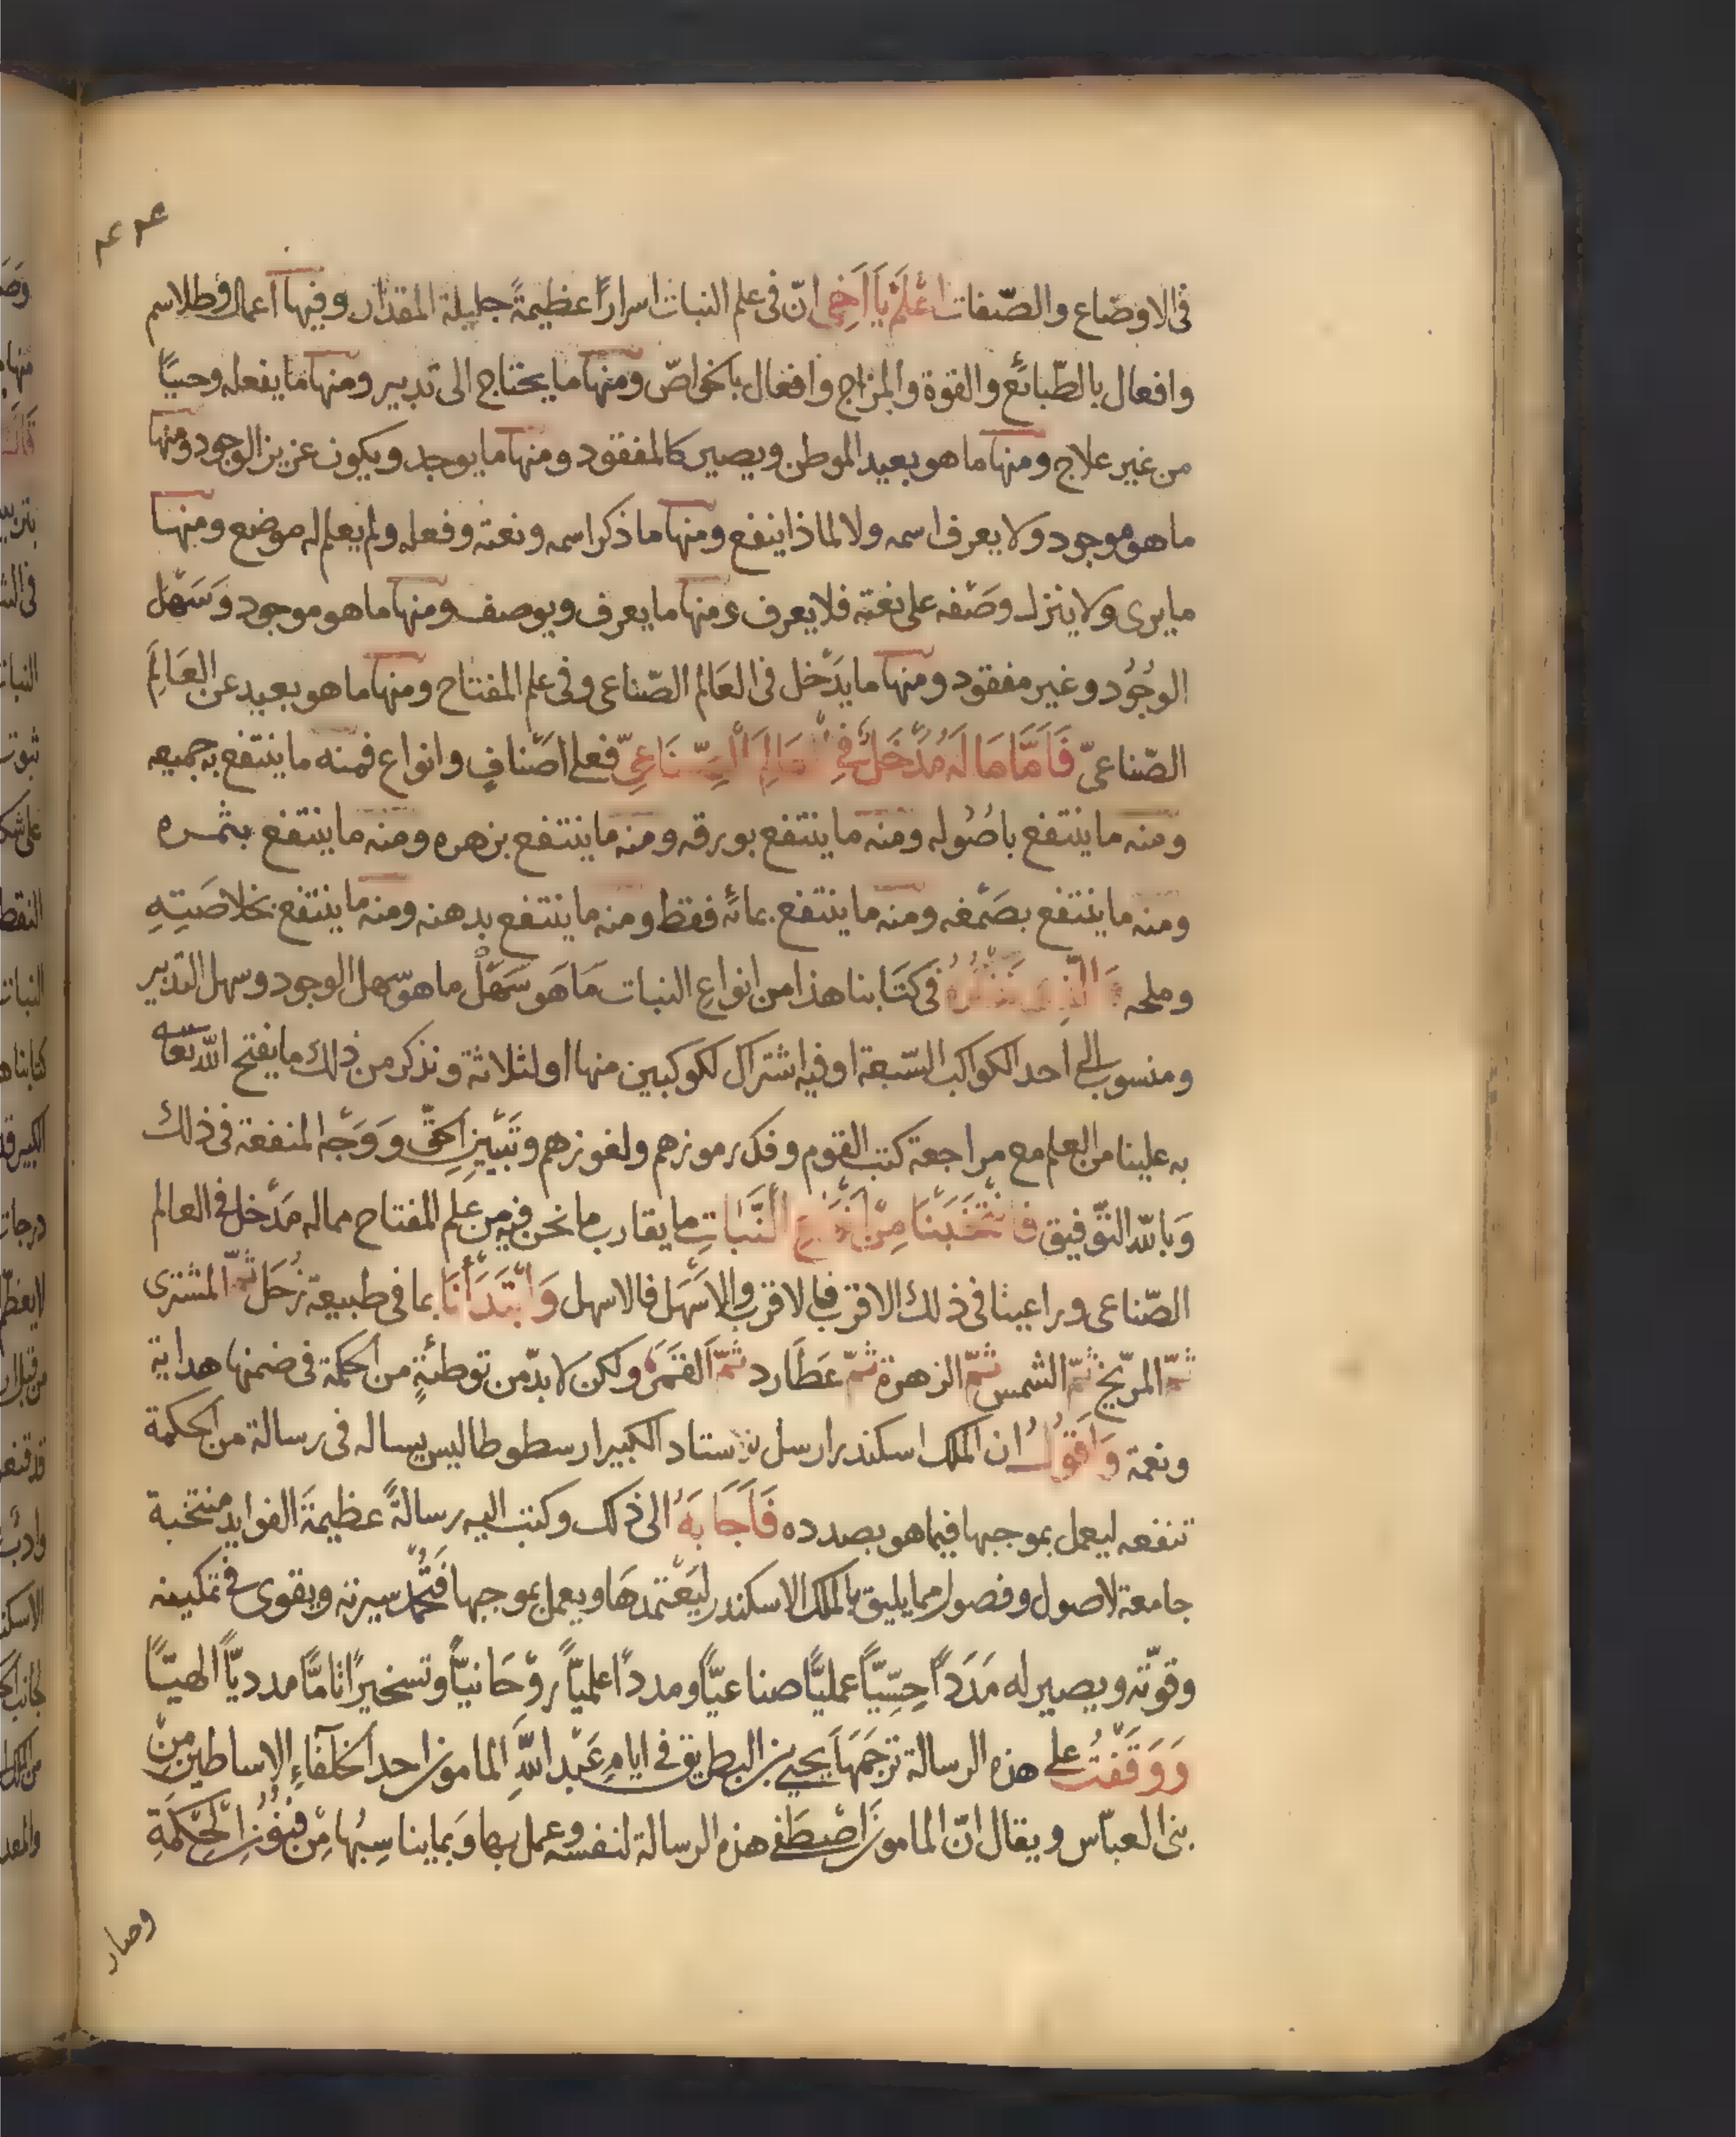 في الاوضاع والصّفات اعْلَمْ يَا اَخِي انّ في علم النبات اسرارًا عظيمةً جليلة المقدار وفيها اعمال وطلاسم
وافعال بالطّبائع والقوة والمزاج وافعال بالخواصّ ومنها ما يحتاج الى تدبير ومنها ما يفعله وحيًّا
من غير علاج ومنها ما هو بعيد الموطن ويصير كالمفقود ومنها ما يوجد ويكون عزيز الوجود ومنها
ما هو موجود ولا يعرف اسمه ولا لماذا ينفع ومنها ما ذكر اسمه ونعته وفعله ولم يعلم له موضع ومنها
ما يرى ولا ينزل وصْفه على نعته فلا يعرف ومنها ما يعرف ويوصف ومنها ما هو موجود وَسَهْل
الوجُود وغير مفقود ومنها ما يدْخل في العَالم الصّناعى وفى علم المفتاح ومنها ما هو بعيد عن العَالَمِ
الصّناعىّ فَاَمَّا مَا لَهُ مُدْخَلٌ فِي العَالِمَ الْصِّنَاعِىِّ فعلى اصْنافٍ وانواع فمنه ما ينتفع به جميعه
ومنه ما ينتفع باصُوله ومنه ما ينتفع بورقه ومنه ما ينتفع بزهره ومنه ما ينتفع بثمره
ومنه ما ينتفع بصَمْغه ومنه ما ينتفع بمائه فقط ومنه ما ينتفع بدهنه ومنه ما ينتفع بخلاصَتِهِ
وملحه وَالَّذِى نَذْكُرُهُ فى كتَابنا هذا من انواع النبات مَا هو سَهْلٌ ما هو سهل الوجود وسهل التدبير
ومنسوب الى احد الكواكب السّبعة او فيه اشتراك لكوكبين منها او لثلاثة ونذكر من ذلك ما يفتح اللّه تعالى
به علينا من العلم مع مراجعة كتب القوم وفك رموزهم ولغوزهم وتَبْيِيزِ الحَقّ وَوَجْه المنفعة فى ذلك
وَباللّه التّوفيق فانْتَخَبْنَا مِنْ اَنْوَاعِ النَّبَاتِ ما يقارب ما نحن فيه من علم المفتاح مما له مَدْخل فى العالم
الصّناعى وراعينا فى ذلك الاقرب فالاقرب والاسْهَل فالاسهل وَابْتَدَأْنَا بما فى طبيعة زُحَل ثمّ المشترى
ثمّ المرّيخ ثمّ الشمس ثمّ الزهرة ثمّ عَطَارد ثمّ القمَر ولكن لا بدّ من توطئةٍ من الحكمة فى ضمنها هداية
ونعمة وَاَقُولُ ان الملك اسكندر ارسل لاستاد الكبير ارسطوطاليس يساله فى رسالة من الحكمة
تنفعه ليعمل بموجبها فيما هو بصدده فَاَجَابَهُ الى ذلك وكتب اليه رسالةً عظيمةَ الفوايد منتخبة
جامعة لاصول وفصول مما يليق بالملك الاسكندر ليَعْتمدهَا ويعمل بموجبها فتُحْمَدُ سيرته ويقوى فى تمكينه
وقوّته ويصير له مَدَدًا حِسِّيًّا عمليًّا صناعيًّا ومددًا علميًّا روْحَانيًّا وتسخيرًا تامًّا مدديًّا الهيًّا
وَوَقَفْتُ على هذه الرسالة ترْجَمَهَا يحيى بن البطريق فى ايام عَبْد اللّهِ المامون احد الخلفاءِ الاساطين مِنْ
بنى العبّاس ويقال انّ المامون اصْطَفى هذه الرسالة لنفسه وعمل بها وَبما يناسِبُهَا مِنْ فنُوْنِ الْحِكْمَةِ
وصار